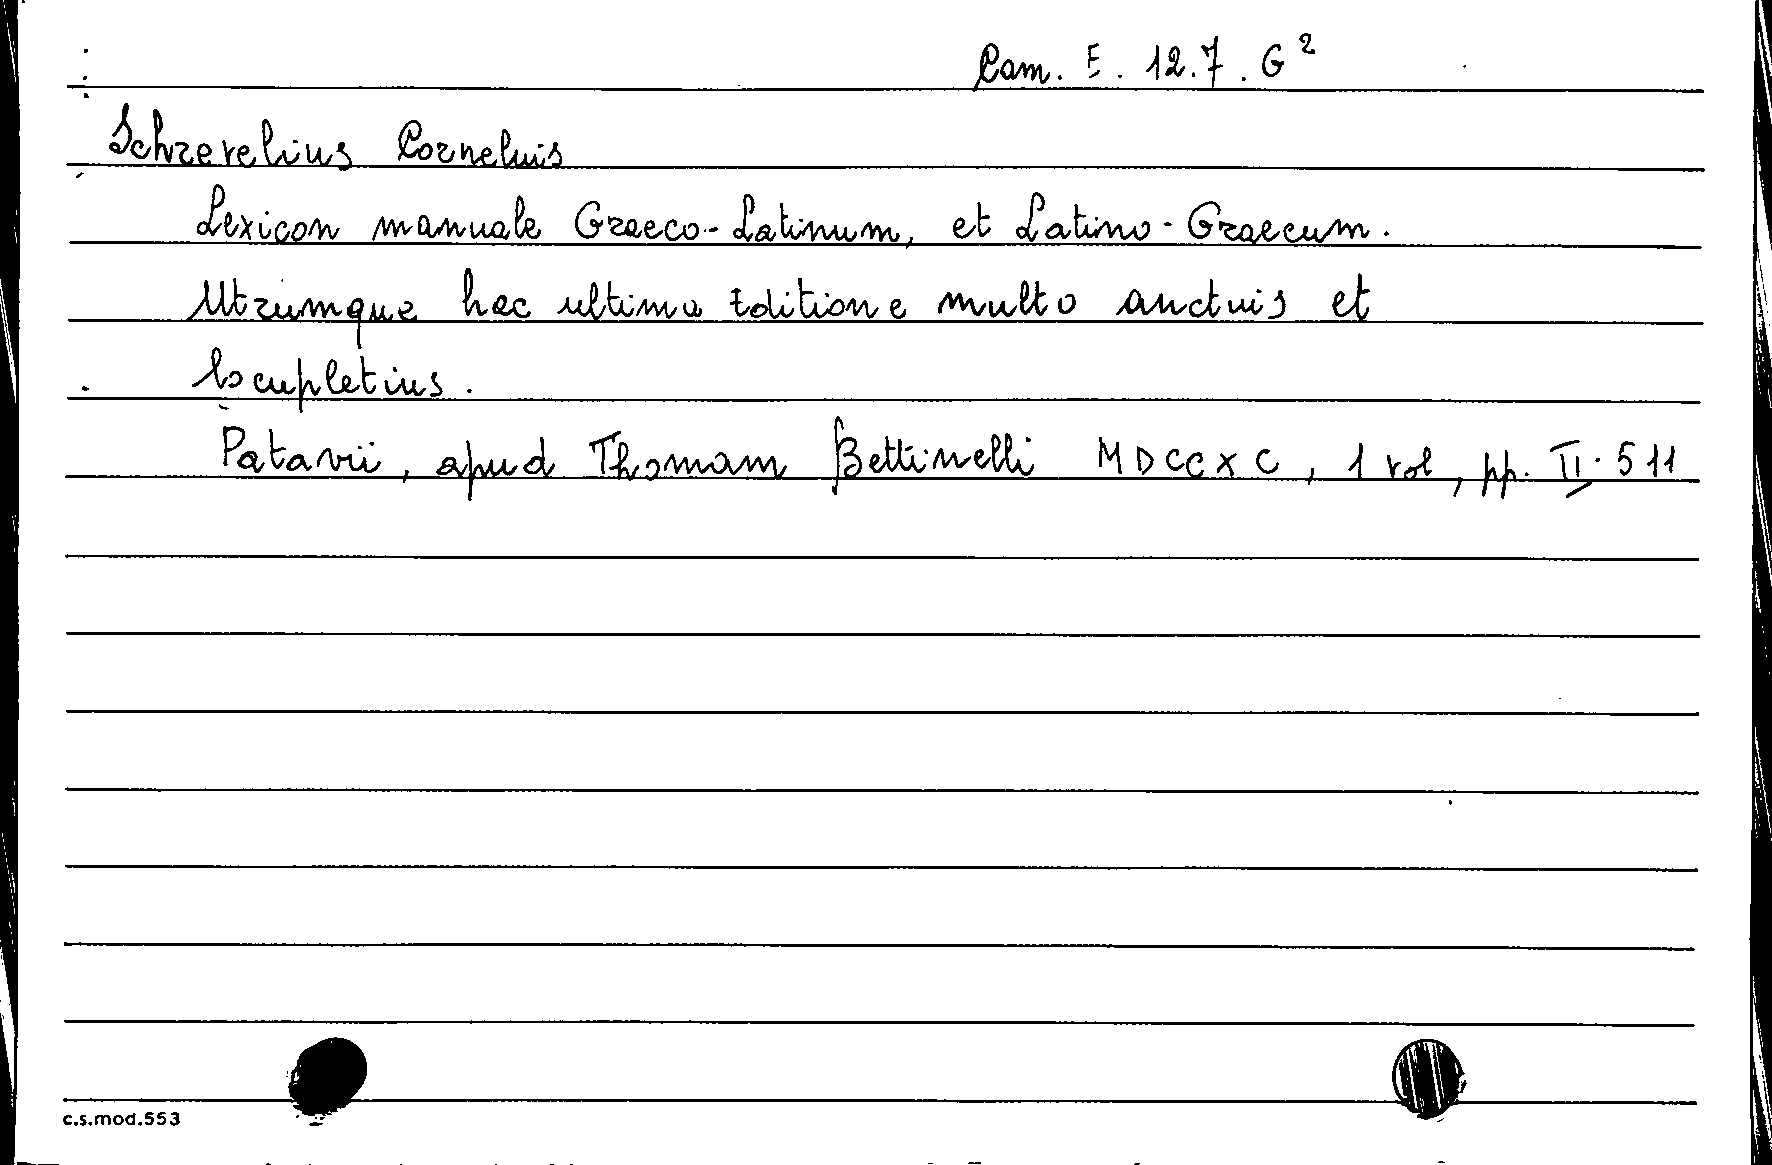 Cam. E. 12.7. G²
Schrevelius Cornelius
Lexicon manuale Graeco-Latinum, et Latino-Graecum.
Utrumque hac ultima Editione multo auctuis et
locupletius.
Patavii, apud Thomam Bettinelli MDCCXC, 1 vol, pp. II-511
c.s.mod.553